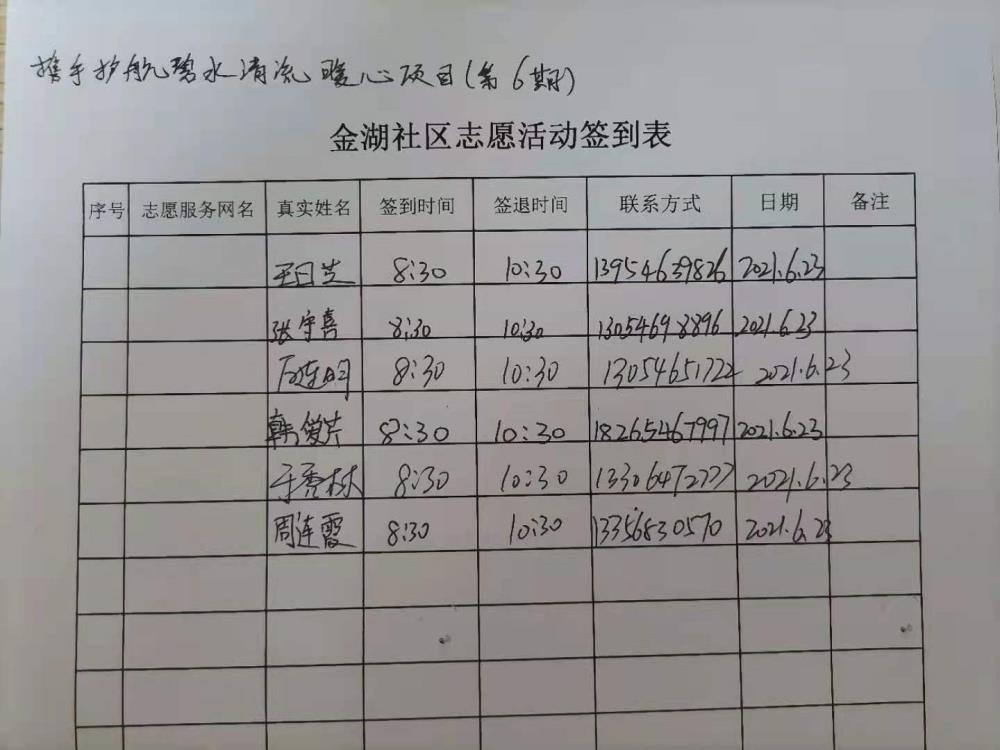 携手护航碧水清流暖心项目(第6期)
金湖社区志愿活动签到表
序号 志愿服务网名 真实姓名 签到时间 签退时间 联系方式 日期 备注
王日芝 8:30 10:30 13954639826 2021.6.23
张守喜 8:30 10:30 13054698896 2021.6.23
8:30 10:30 13054651722 2021.6.23
韩爱芹 8:30 10:30 18265467997 2021.6.23
于秀林 8:30 10:30 2021.6.23
周连霞 8:30 10:30 13356830570 2021.6.23